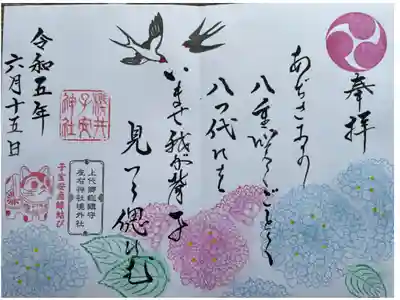 奉拝
あぢさゐの
八重咲くごとく
八つ代にを
いませ我が背子
見つゝ偲はむ
子安
神社
上代郷総鎮守
左右神社境外社
子宝安産縁結び
令和五年
六月十五日